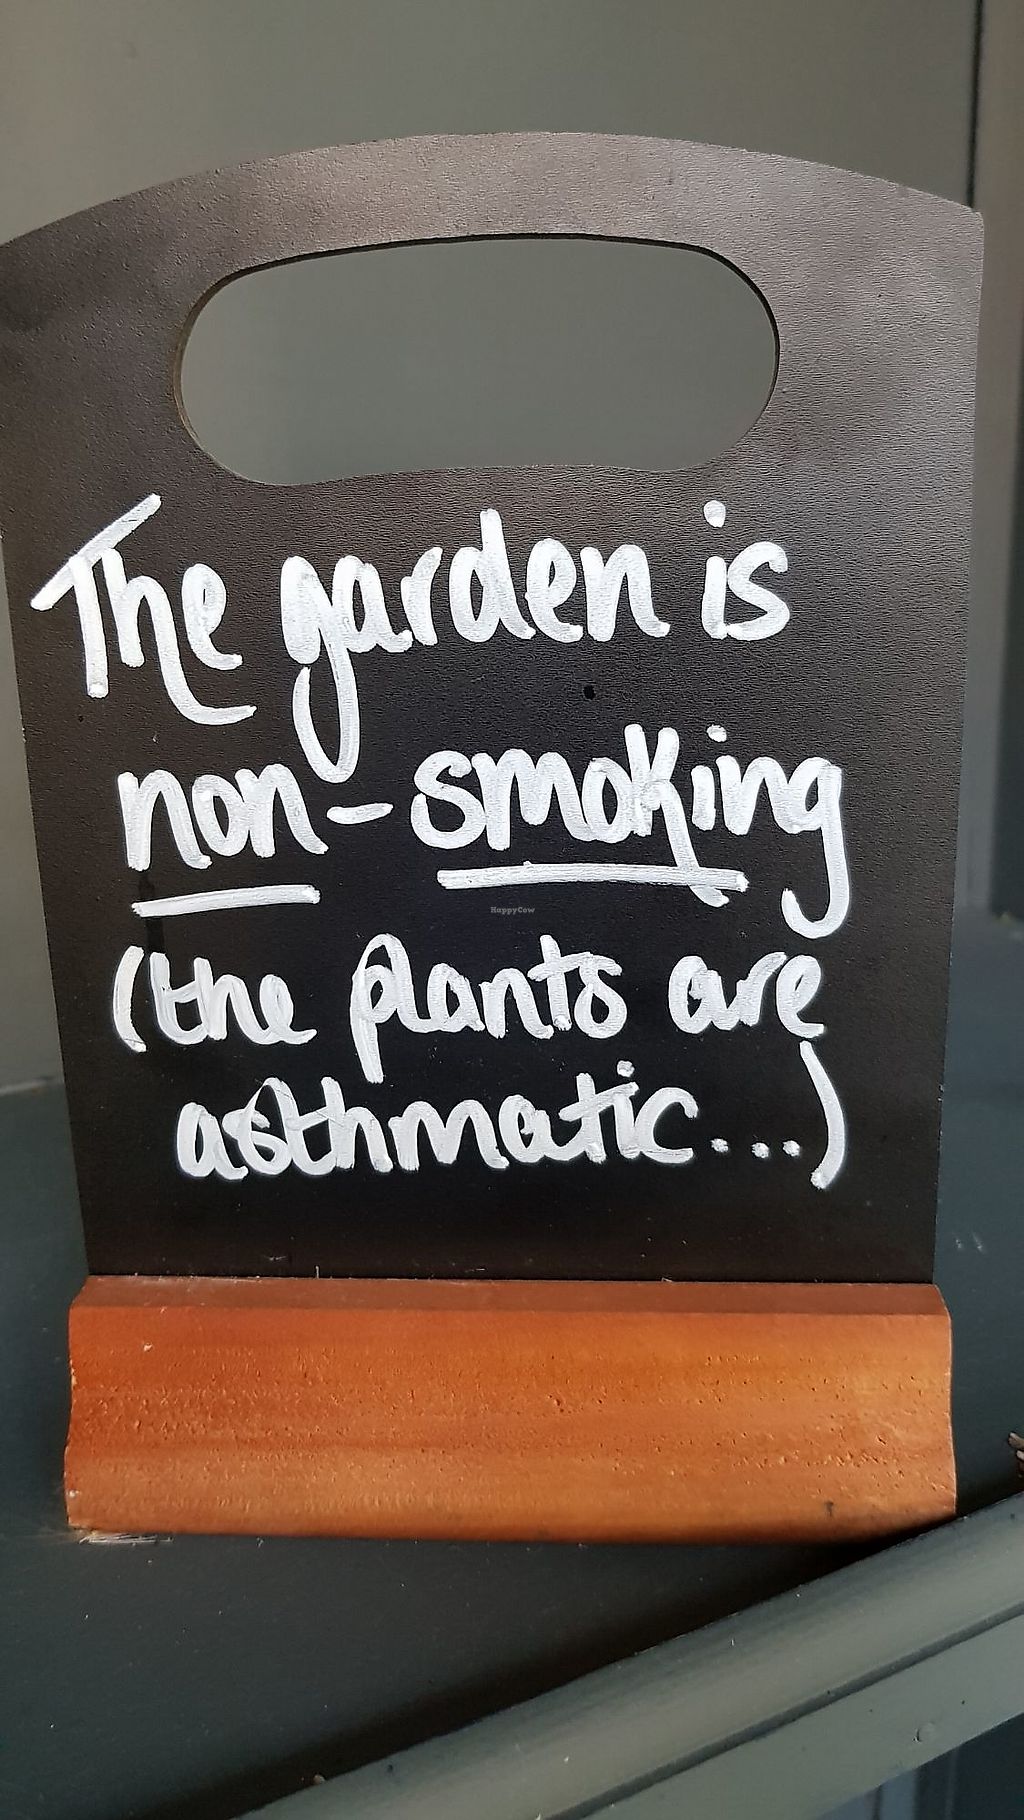 The garden is
non-smoking
HappyCow
(the plants are
asthmatic...)